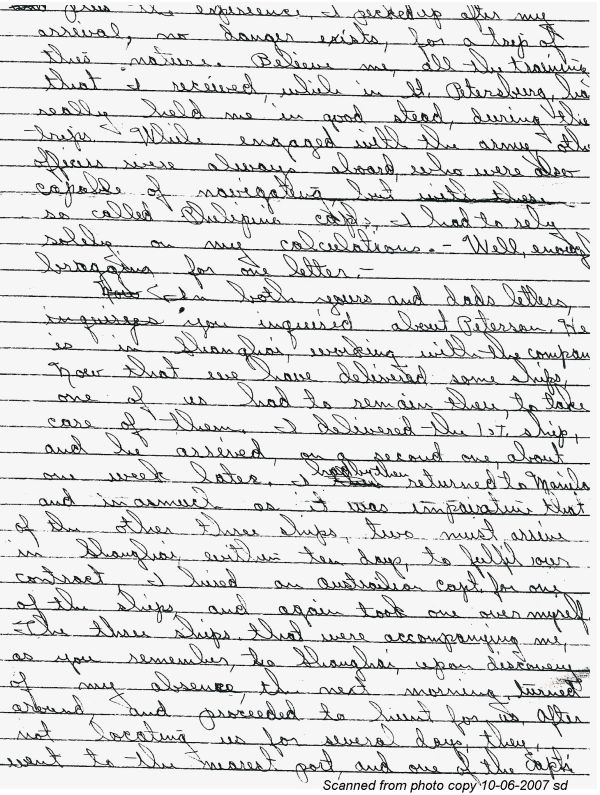 the experience, I picked up after my
arrival, no danger exists, for a trip of
this nature. Believe me, all the training
that I received, while in St. Petersburg, ha
really held me in good stead, during the
trips. While engaged with the army, oth
officers were always aboard, who were also
capable of navigating but with these
so called Philipine capts, I had to rely
solely on my calculations. - Well, enough
bragging for one letter. -
In both yours and dads letters,
you inquired about Peterson. He
is in Shanghai, working with the compan
Now that we have delivered some ships,
one of us had to remain there, to take
care of them. I delivered the 1st ship,
and he arrived, on a second one, about
one week later. I had then returned to Manila
and inasmuch as it was imparative that
of the other three ships, two must arrive
in Shanghai, within ten days, to fulfil our
contract, I hired an Australian capt. for one
of the ships, and again took one over myself
The three ships, that were accompanying me,
as you remember, to Shanghai, upon discovery
of my absence, the next morning, turned
around and proceeded to hunt for us. After
not locating us for several days, they,
went to the nearest port, and one of the Capts
Scanned from photo copy 10-06-2007 sd